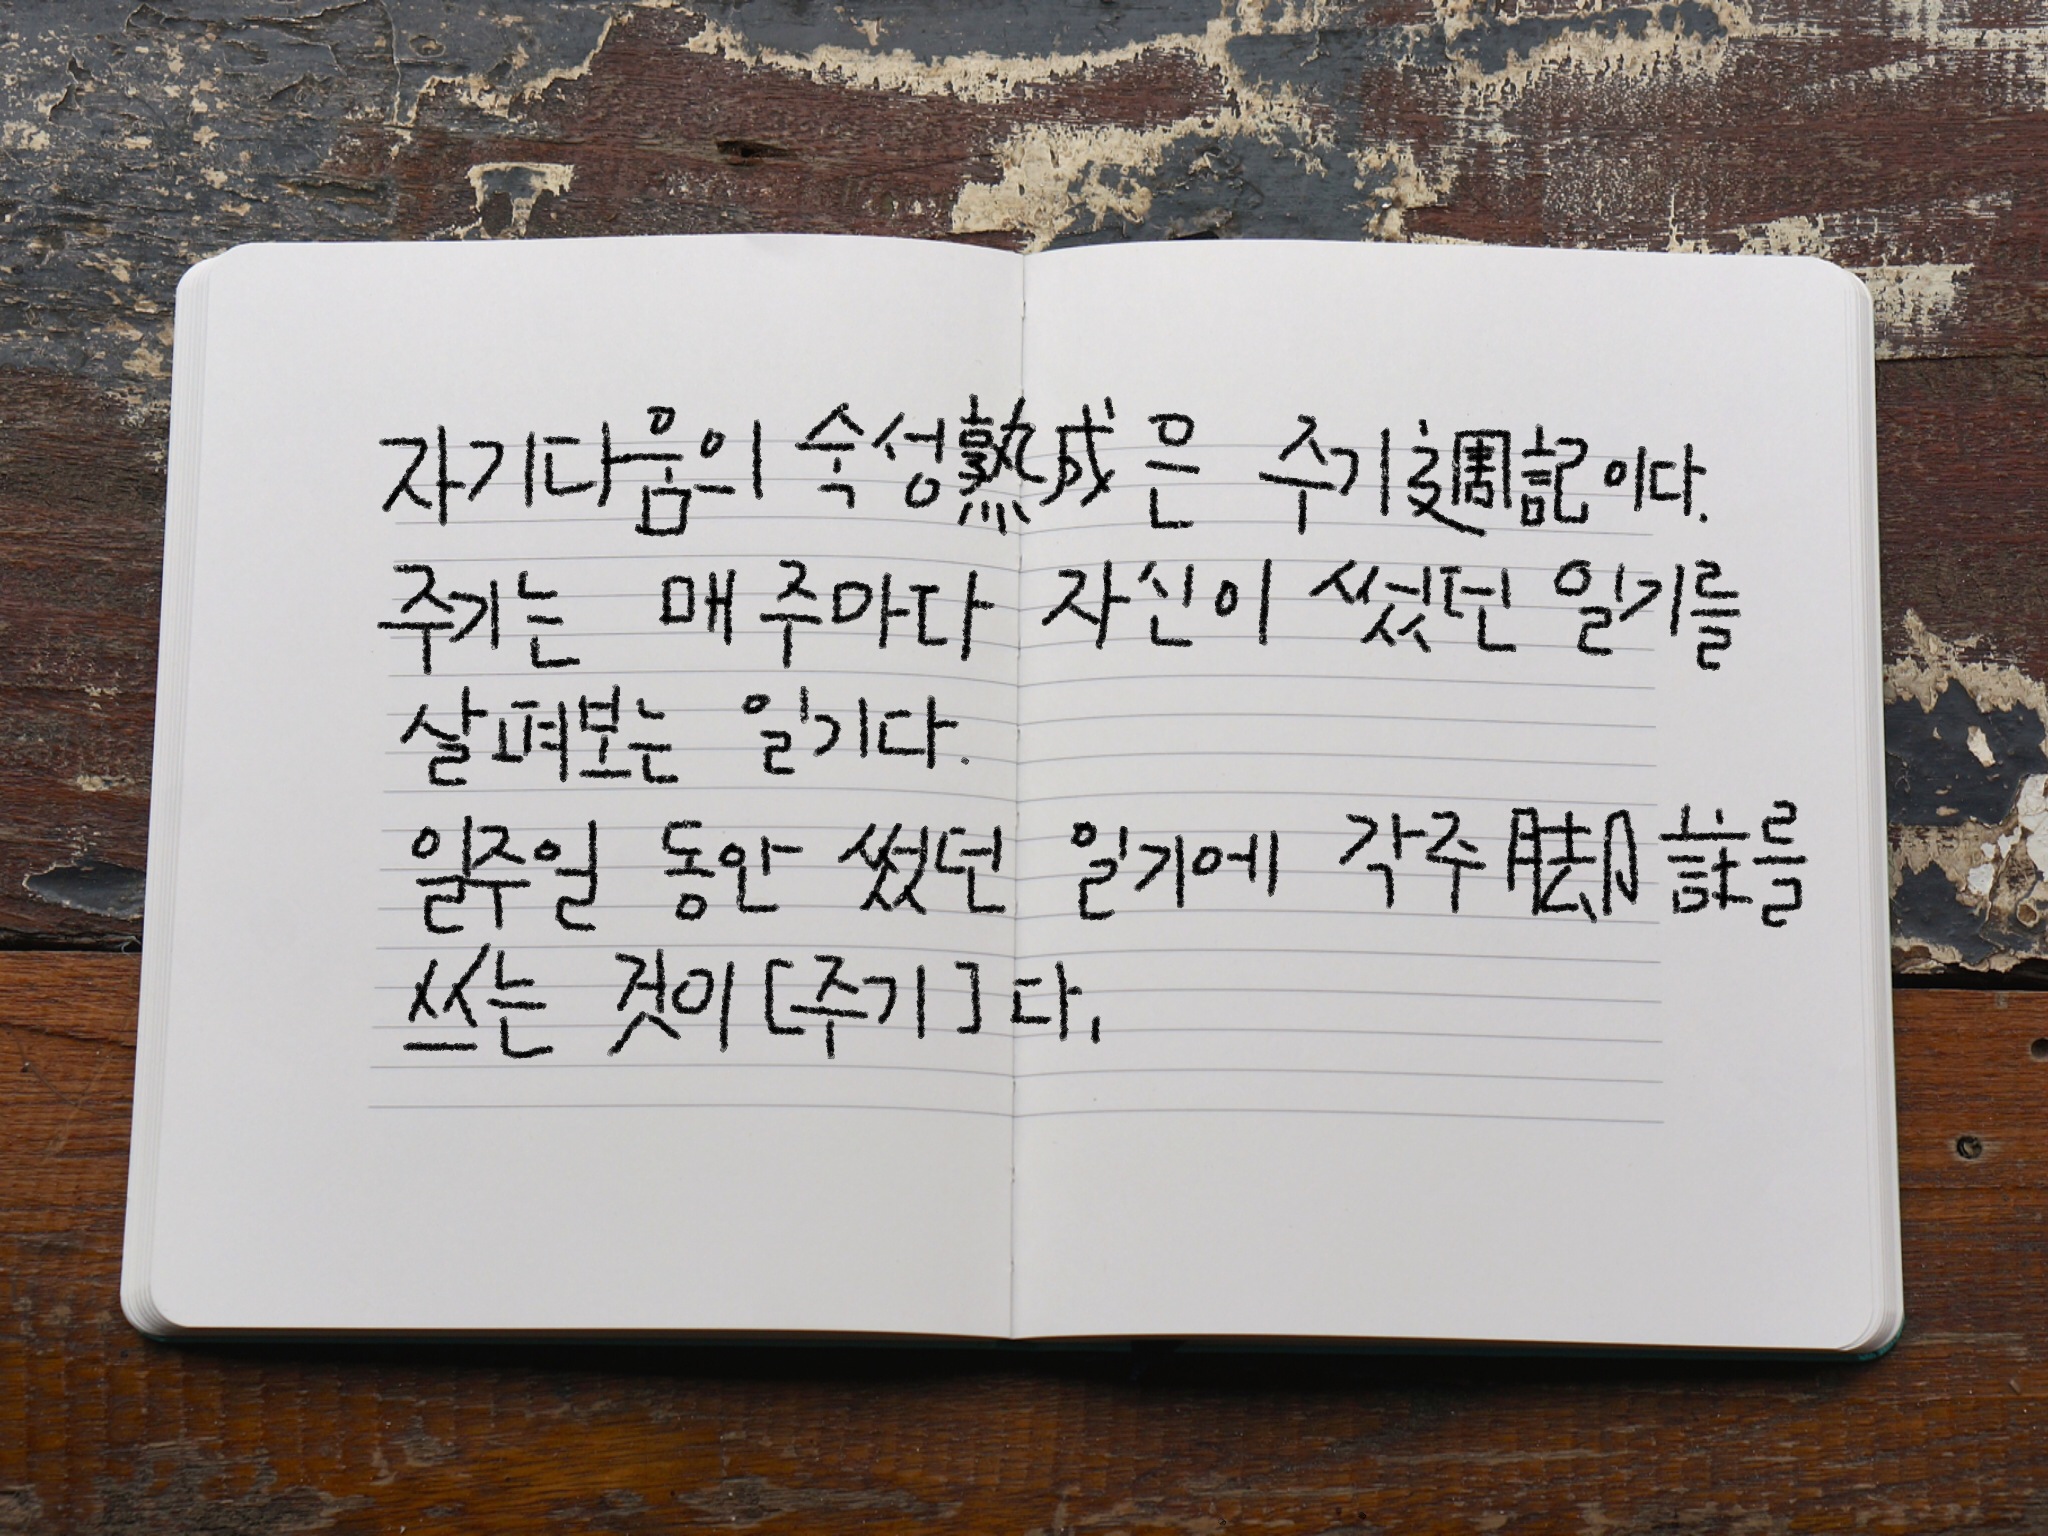 자기다움의 숙성熟成은 주기週記이다.
주기는 매 주마다 자신이 썼던 일기를
살펴보는 일기다.
일주일 동안 썼던 일기에 각주脚註를
쓰는 것이 [주기]다.